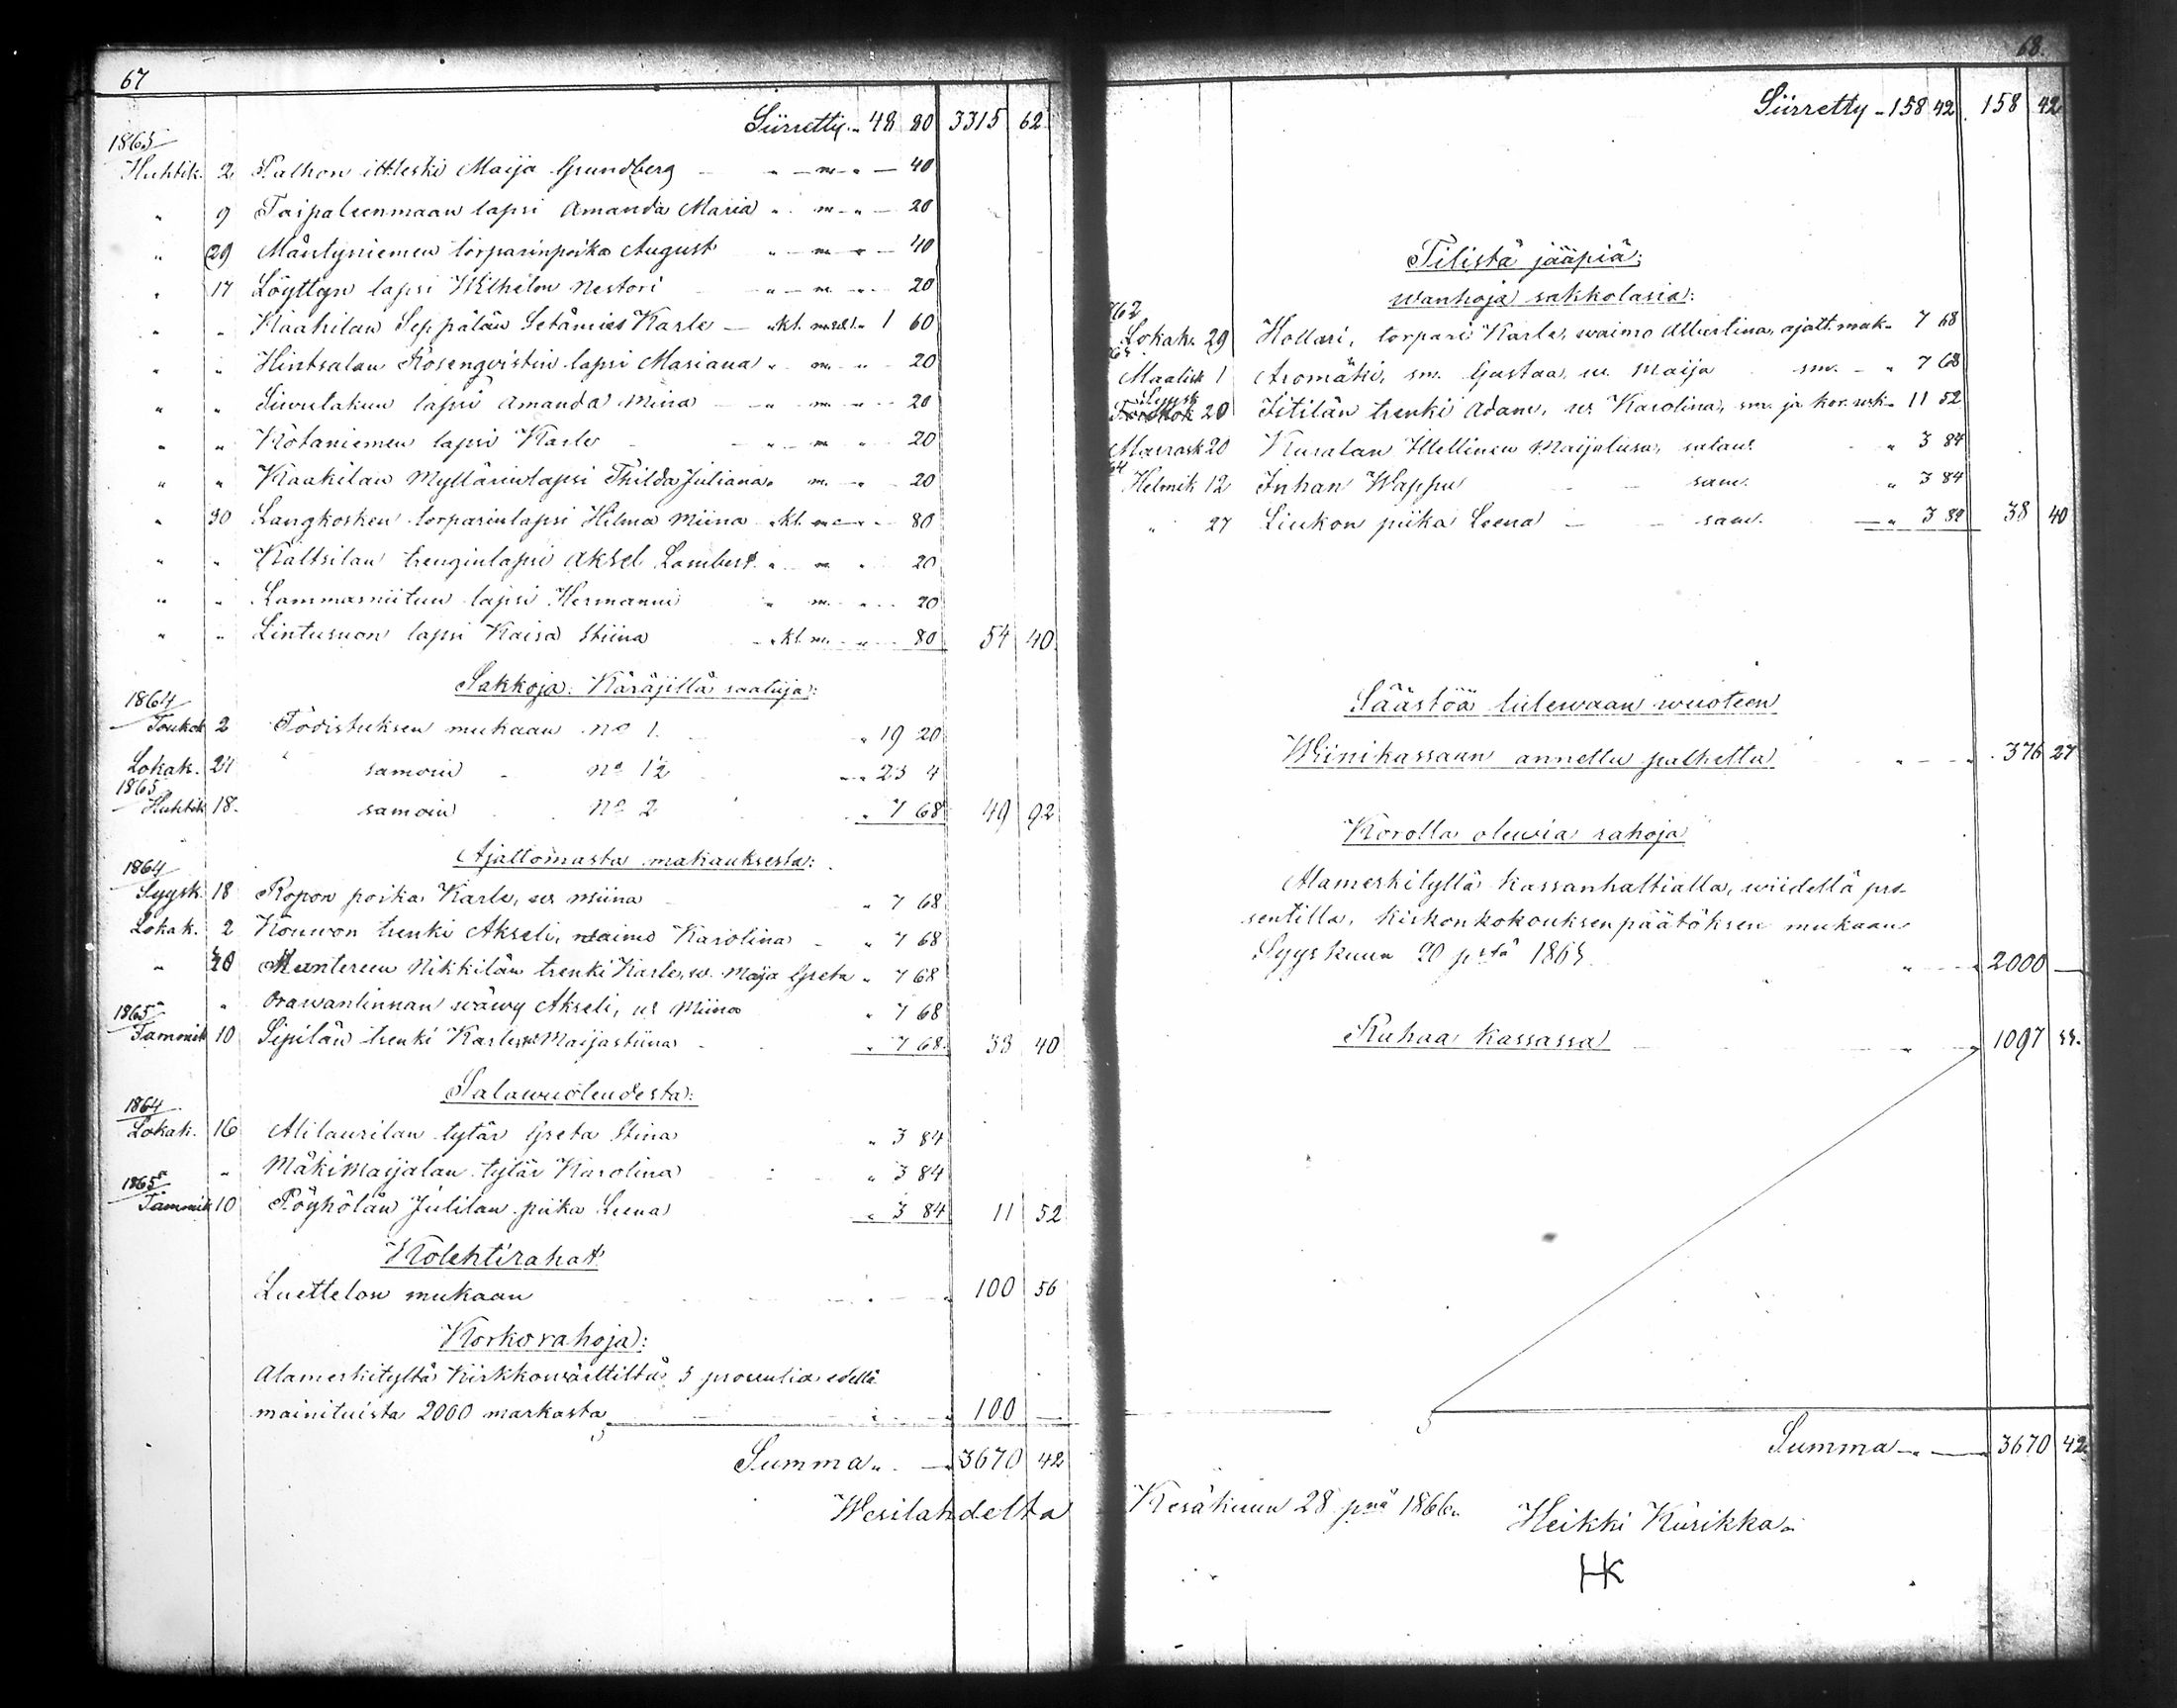 67
Siirretty „ 48 80 3315 62
1865
Huhtik. 2 Palhon ittleski Maija Grundberg „ — m. „ — 40
„ 9 Taipaleenmaan lapsi Amanda Maria „ m. „ — 20
„ 29 Mäntyniemen torparinpoika August „ — m. „ — 40
„ 17 Löyttyn lapsi Wilhelm Nestori „ — m. „ 20
„ „ Kaakilan Seppälän Setämies Karle — „ kl. „ 1 60
„ „ Hintsalan Rosenqvistin lapsi Mariana „ m. „ 20
„ „ lapsi Amanda Miina „ m. „ 20
„ „ Kotaniemen lapsi Karle „ m. „ 20
„ „ Kaakilan Myllärinlapsi Thilda Juliana „ m. „ 20
„ 30 Langkosken torparinlapsi Hilma Miina „ kl. m. „ 80
„ „ Kaltsilan trenginlapsi Aksel Lambert „ m. „ 20
„ „ Lammasniitun lapsi Hermanni „ m. „ 20
„ „ Lintusuon lapsi Kaisa Stiina „ kl. m. „ 80 54 40
Sakkoja: Käräjillä saatuja:
1864
Toukok 2 Todistuksen mukaan No 1. „ 19 20
Lokak. 24 samoin No 12 „ 23 4
1865
Huhtik 18. samoin No 2 „ 7 68 49 92
Ajattomasta makauksesta:
1864
Syysk. 18 Ropon poika Karle, w. Miina „ 7 68
Lokak. 2 Kouwon trenki Akseli, waimo Karolina „ 7 68
„ Mantereen Nikkilän trenki Karle, w. Maija Greta „ 7 68
„ Orawanlinnan wäwy Akseli, w. Miina „ 7 68
1865
Tammik 10 Sipilän trenki Karle, w. Maijastiina „ 7 68 38 40
Salawuoteudesta:
1864
Lokak. 16 Alilaurilan tytär Greta Stina „ 3 84
„ Mäkimaijalan tytär Karolina „ 3 84
1865
Tammik 10 Pöyhölän Julilan piika Leena „ 3 84 11 52
Kolehtirahat
Luettelon mukaan „ 100 56
Korkorahoja:
Alamerkityltä Kirkkowärttiltä 5 prosentia edellä
mainituista 2000 markasta „ 100 —
Summa „ — 3670 42
Wesilahdelta
68.
Siirretty „ 158 42 158 42
Tilistä jääpiä;
wanhoja sakkolasia:
862
Lokak. 29 Hollari, torpari Karle, waimo Albertina, ajatt. mak. 7 68
Maalisk 1 Aromäki, sm. Gustaa, w. Maija sm. „ 7 68
20 Iitilän trenki Adam, w. Karolina, sm. ja 11 52
Marrask 20 Kuralan Hellinen Maijaliisa, salaw. „ 3 84
64
Helmik 12 Inhan Wappu sam. „ 3 84
„ 27 Liukon piika Leena — sam. — „ 3 84 38 40
Säästöä tulewaan wuoteen
Wiinikassaan annettu puthetta „ 376 27
Korolla olewia rahoja
Alamerkityllä Kassanhaltialla, wiidellä pro-
sentilla, Kirkonkokouksenpäätöksen mukaan
Syyskuun 20 pstä 1863. „ 2000 —
Rahaa Kassassa 1097 33.
Summa „ — 3670 42
Kesäkuun 28 pnä 1866. Heikki Kürikka.
HK